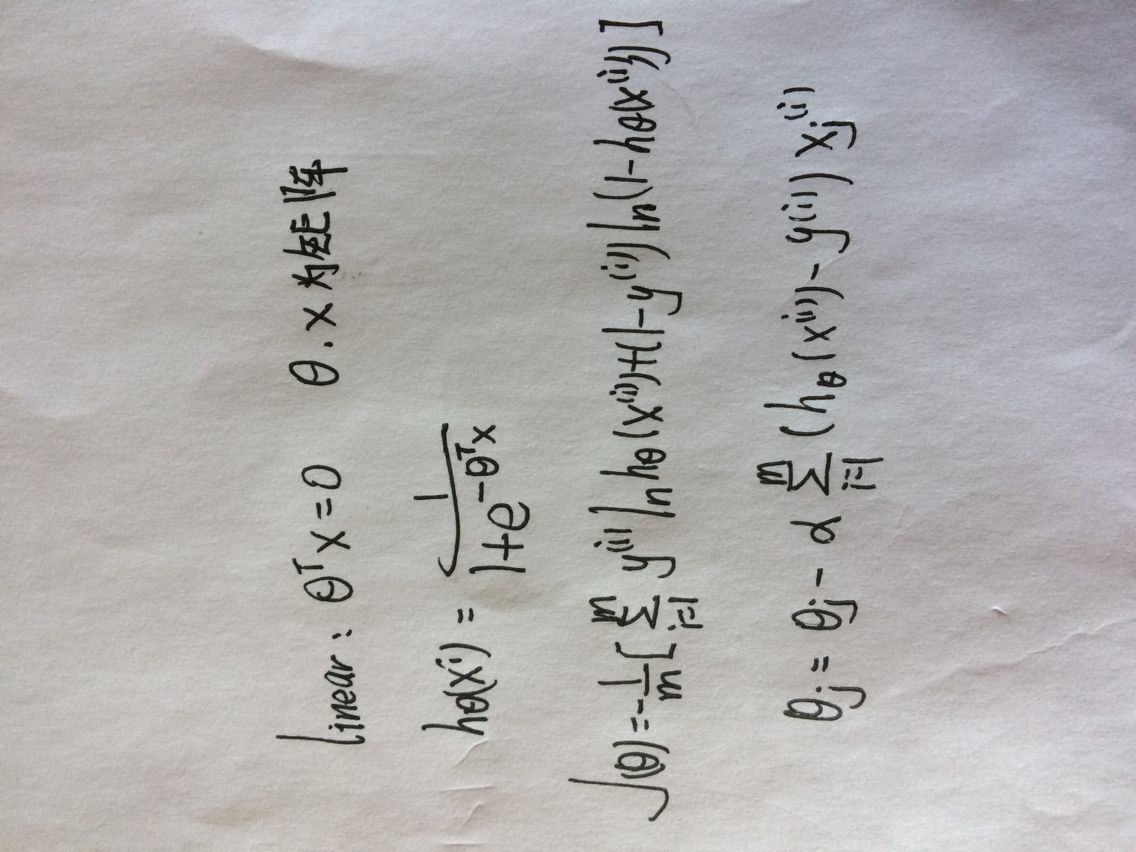 Linear: θᵀx=0 θ.x为矩阵
hθ(xⁱ) = 1/(1+e^(-θᵀx))
J(θ)=-1/m[∑_{i=1}^{m} y⁽ⁱ⁾ln hθ(x⁽ⁱ⁾)+(1-y⁽ⁱ⁾)ln(1-hθ(x⁽ⁱ⁾)]
θj = θj - α ∑_{i=1}^{m} (hθ(x⁽ⁱ⁾)-y⁽ⁱ⁾) xj⁽ⁱ⁾